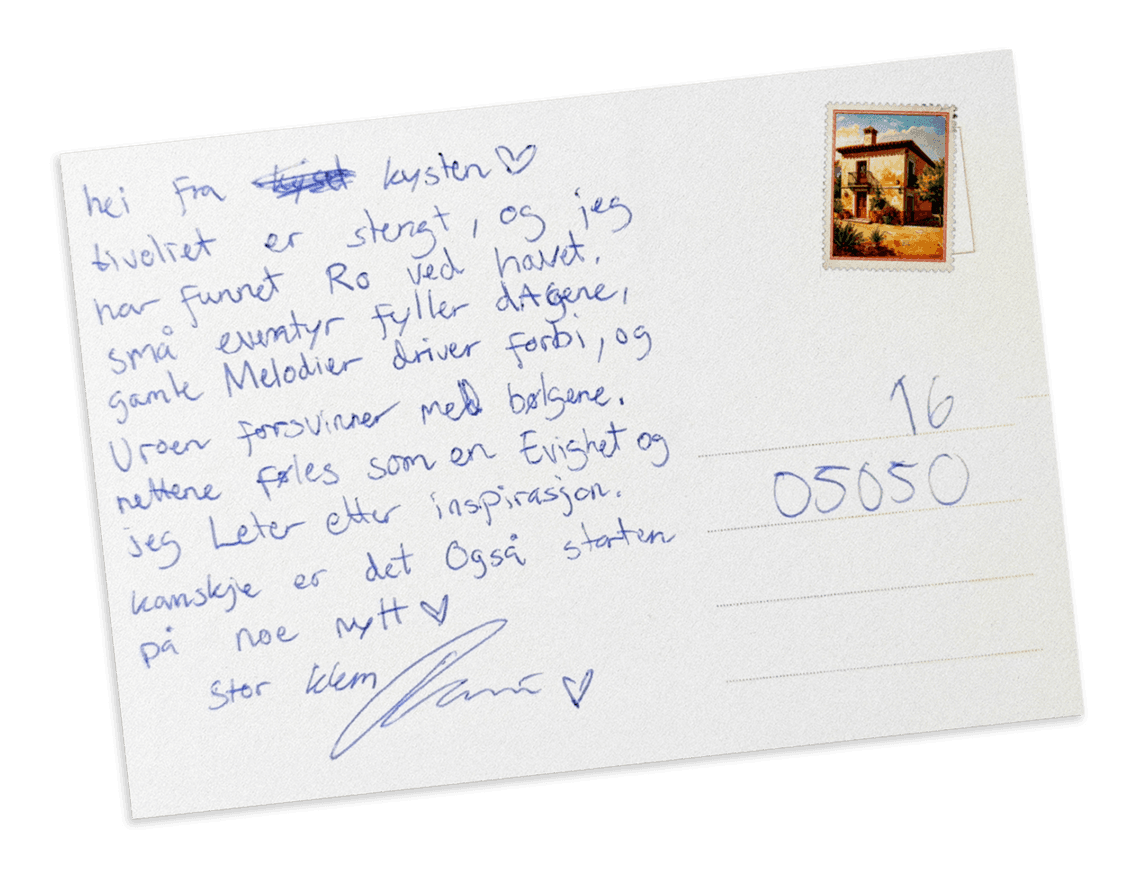 hei fra kysten♡
tivoliet er stengt, og jeg
har funnet Ro ved havet.
små eventyr fyller dAgene,
gamle Melodier driver forbi, og
Uroen forrsvinner med bølgene.
nettene føles som en Evighet og
jeg Leter etter inspirasjon.
kanskje er det Også starten
på noe nytt ♡
stor klem
16
05050